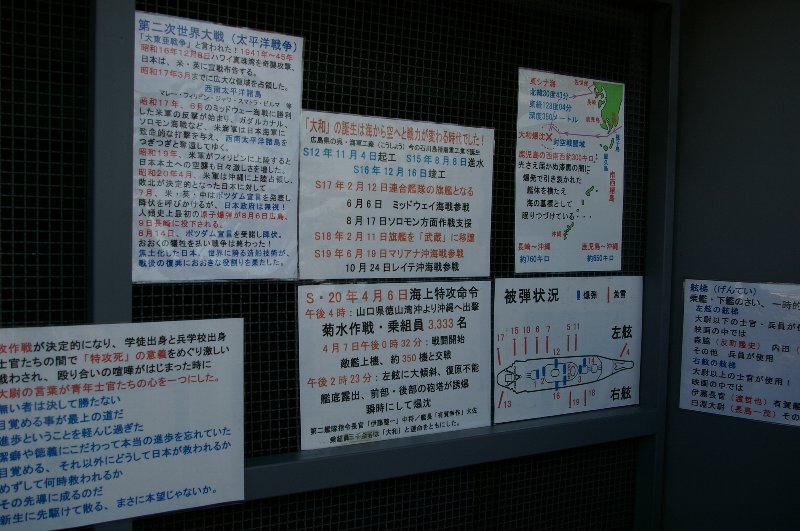 第二次世界大戦（太平洋戦争）
「大東亜戦争」と言われた！1941年～45年
昭和16年12月8日ハワイ真珠湾を奇襲攻撃、
日本は、米・英に宣戦布告する。
昭和17年3月までに広大な領域を占領した。
西南太平洋諸島
マレー・フィリピン・ジャワ・スマトラ・ビルマ 等
昭和17年、6月のミッドウェー海戦に勝利
した米軍の反撃が始まり、ガダルカナル、
ソロモン海戦など、米海軍は日本海軍に
致命的な打撃を与え、西南太平洋諸島を
つぎつぎと奪還してゆく。
昭和19年、米軍がフィリピンに上陸すると
日本本土への空襲も日々激しさを増した。
昭和20年4月、米軍は沖縄に上陸占領し、
敗北が決定的となった日本に対して
7月、米・英・中はポツダム宣言を発表し
降伏を呼びかけるが、日本政府は無視！
人類史上最初の原子爆弾が8月6日広島、
9日長崎に投下される。
8月14日、ポツダム宣言を受諾し降伏。
おおくの犠牲を払い戦争は終わった！
焦土化した日本、世界に誇る造船技術が、
戦後の復興におおきな役割りを果たした。
「大和」の誕生は海から空へと戦力が変わる時代でした！
広島県の呉・海軍工廠（こうしょう）今の石川島播磨重工業で誕生
S12年11月4日起工 S15年8月8日進水
S16年12月16日竣工
S17年2月12日連合艦隊の旗艦となる
6月6日 ミッドウェイ海戦参戦
8月17日ソロモン方面作戦支援
S18年2月11日旗艦を「武蔵」に移譲
S19年6月19日マリアナ沖海戦参戦
10月24日レイテ沖海戦参戦
東シナ海
北緯30度43分
東経128度04分
深度350メートル
長崎
大和爆沈X 対空戦闘域
鹿児島の西南西約300キロ
先さえ届かぬ漆黒の闇に
爆発で引き裂かれた
艦体を横たえ
海の墓標として
眠りつづけている・・・
種子島
屋久島
南西諸島
沖縄
長崎～沖縄
約760キロ
鹿児島～沖縄
約650キロ
S・20年4月6日海上特攻命令
午後4時：山口県徳山湾沖より沖縄へ出撃
菊水作戦・乗組員3,333名
4月7日午後0時32分：戦闘開始
敵艦上機、約350機と交戦
午後2時23分：左舷に大傾斜、復原不能
艦底露出、前部・後部の砲塔が誘爆
瞬時にして爆沈
第二艦隊指令長官「伊藤整一」中将／艦長「有賀幸作」大佐
乗組員三千余名は「大和」と運命をともにした。
被弾状況 爆弾 魚雷
左舷
右舷
攻作戦が決定的になり、学徒出身と兵学校出身
士官たちの間で「特攻死」の意義をめぐり激しい
戦わされ、殴り合いの喧嘩がはじまった時に
大尉の言葉が青年士官たちの心を一つにした。
無い者は決して勝たない
目覚める事が最上の道だ
進歩ということを軽んじ過ぎた
潔癖や徳義にこだわって本当の進歩を忘れていた
目覚める、それ以外にどうして日本が救われるか
めずして何時救われるか
その先導に成るのだ
新生に先駆けて散る、まさに本望じゃないか。
舷梯（げんてい）
乗艦・下艦のさい、一時的
左舷の舷梯
大尉以下の士官・兵員が
映画の中では
森脇（反町隆史） 内田（
その他 兵員が使用
右舷の舷梯
大尉以上の士官が使用！
映画の中では
伊藤長官（渡哲也）有賀艦
臼淵大尉（長島一茂）その